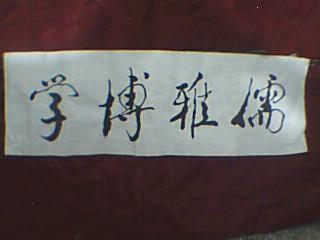 儒雅博学